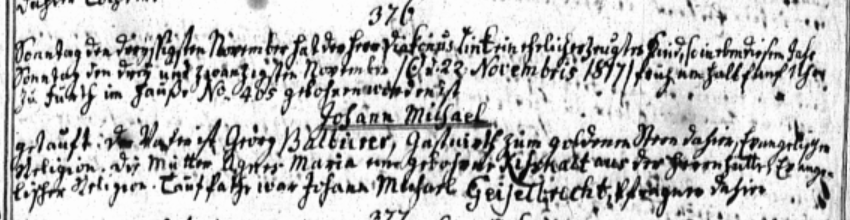 376
Sonntag den dreyßigsten November hat der Herr Diakonus Link ein ehelich erzeugtes Kind, so in eben diesem Jahr
Sonntag den drey und zwanzigsten November 1817 früh um halb fünf Uhr
zu Fürth im Hauße No. 465 gebohren worden ist
Johann Michael
getauft. Der Vater ist Georg Gastwirth zum goldenen Stern dahier, Evangelischer
Religion. Die Mutter Agnes Maria eine gebohrne aus der Evange-
lischer Religion. Taufpathe war Johann Michael Geißelbrecht, dahier
377